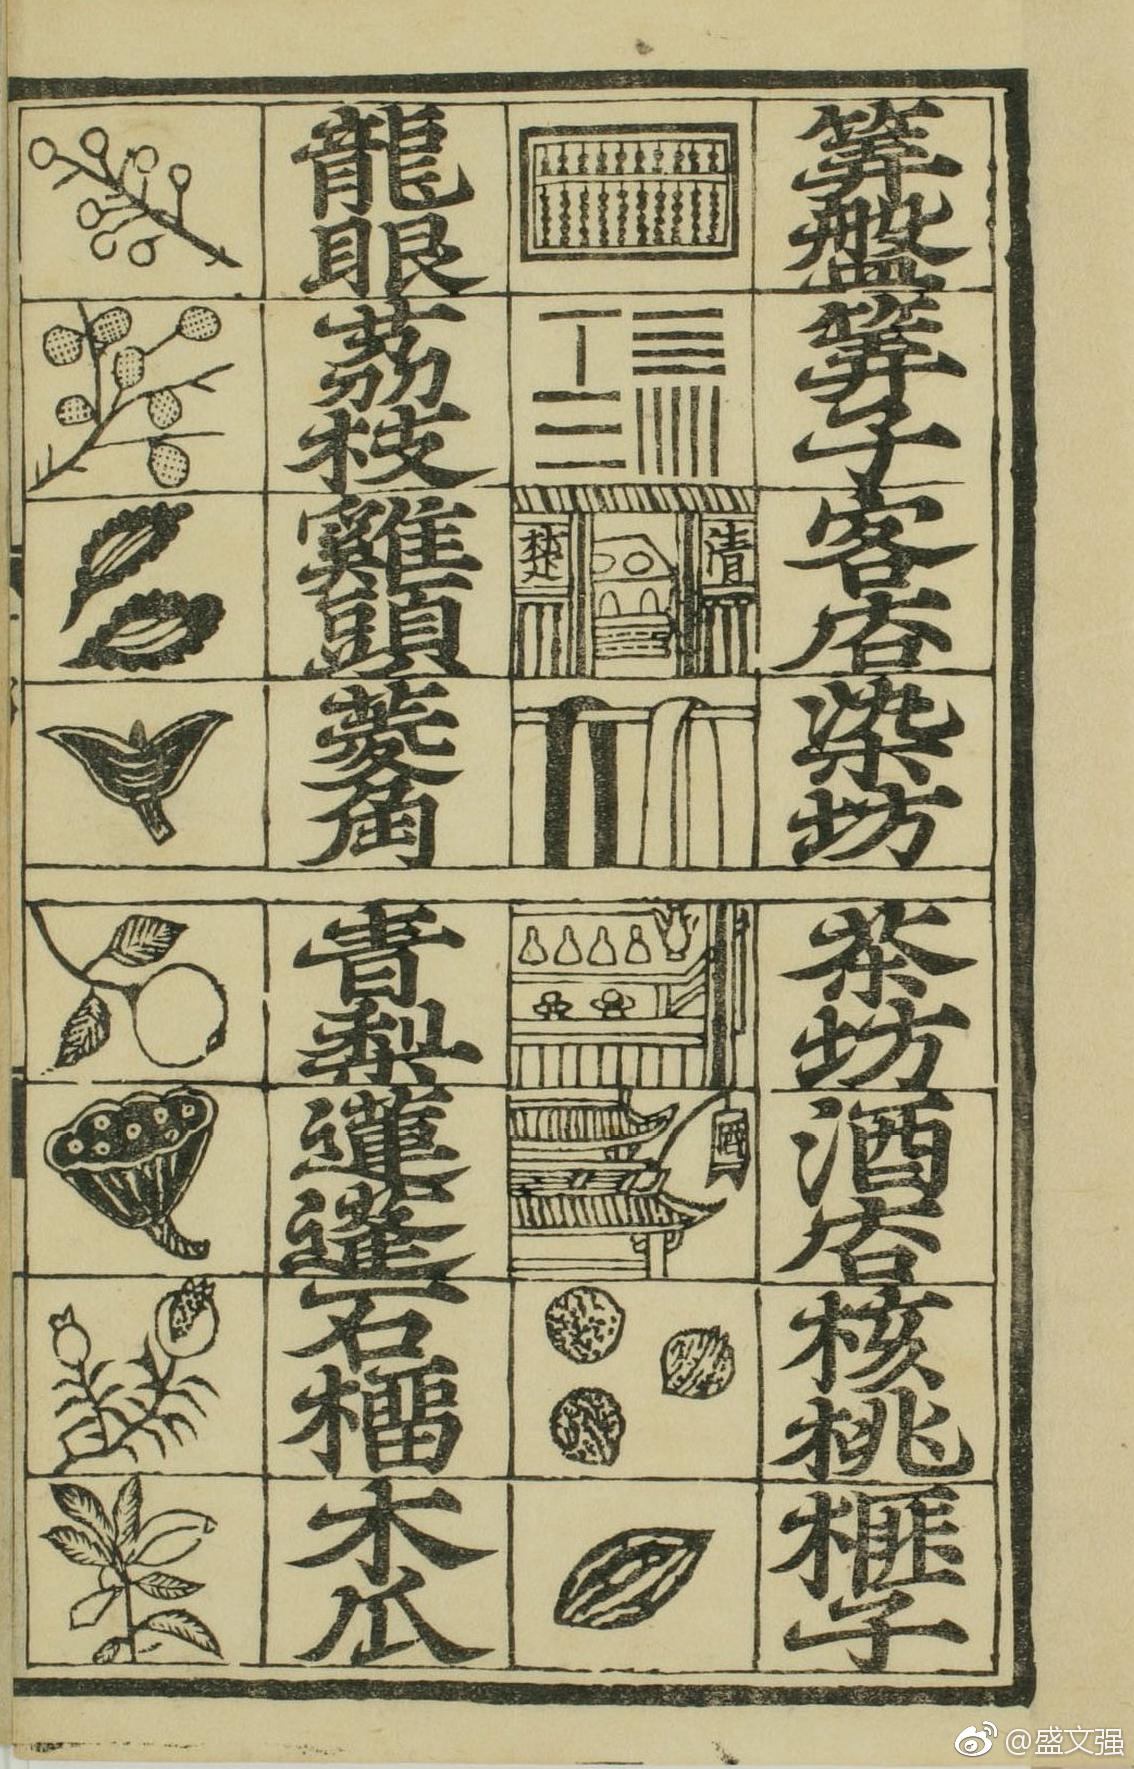 筭盤
筭子
客店
染坊
清
楚
茶坊
酒店
核桃
榧子
酒
龍眼
荔枝
雞頭
菱角
青梨
蓮蓬
石榴
木瓜
@盛文强